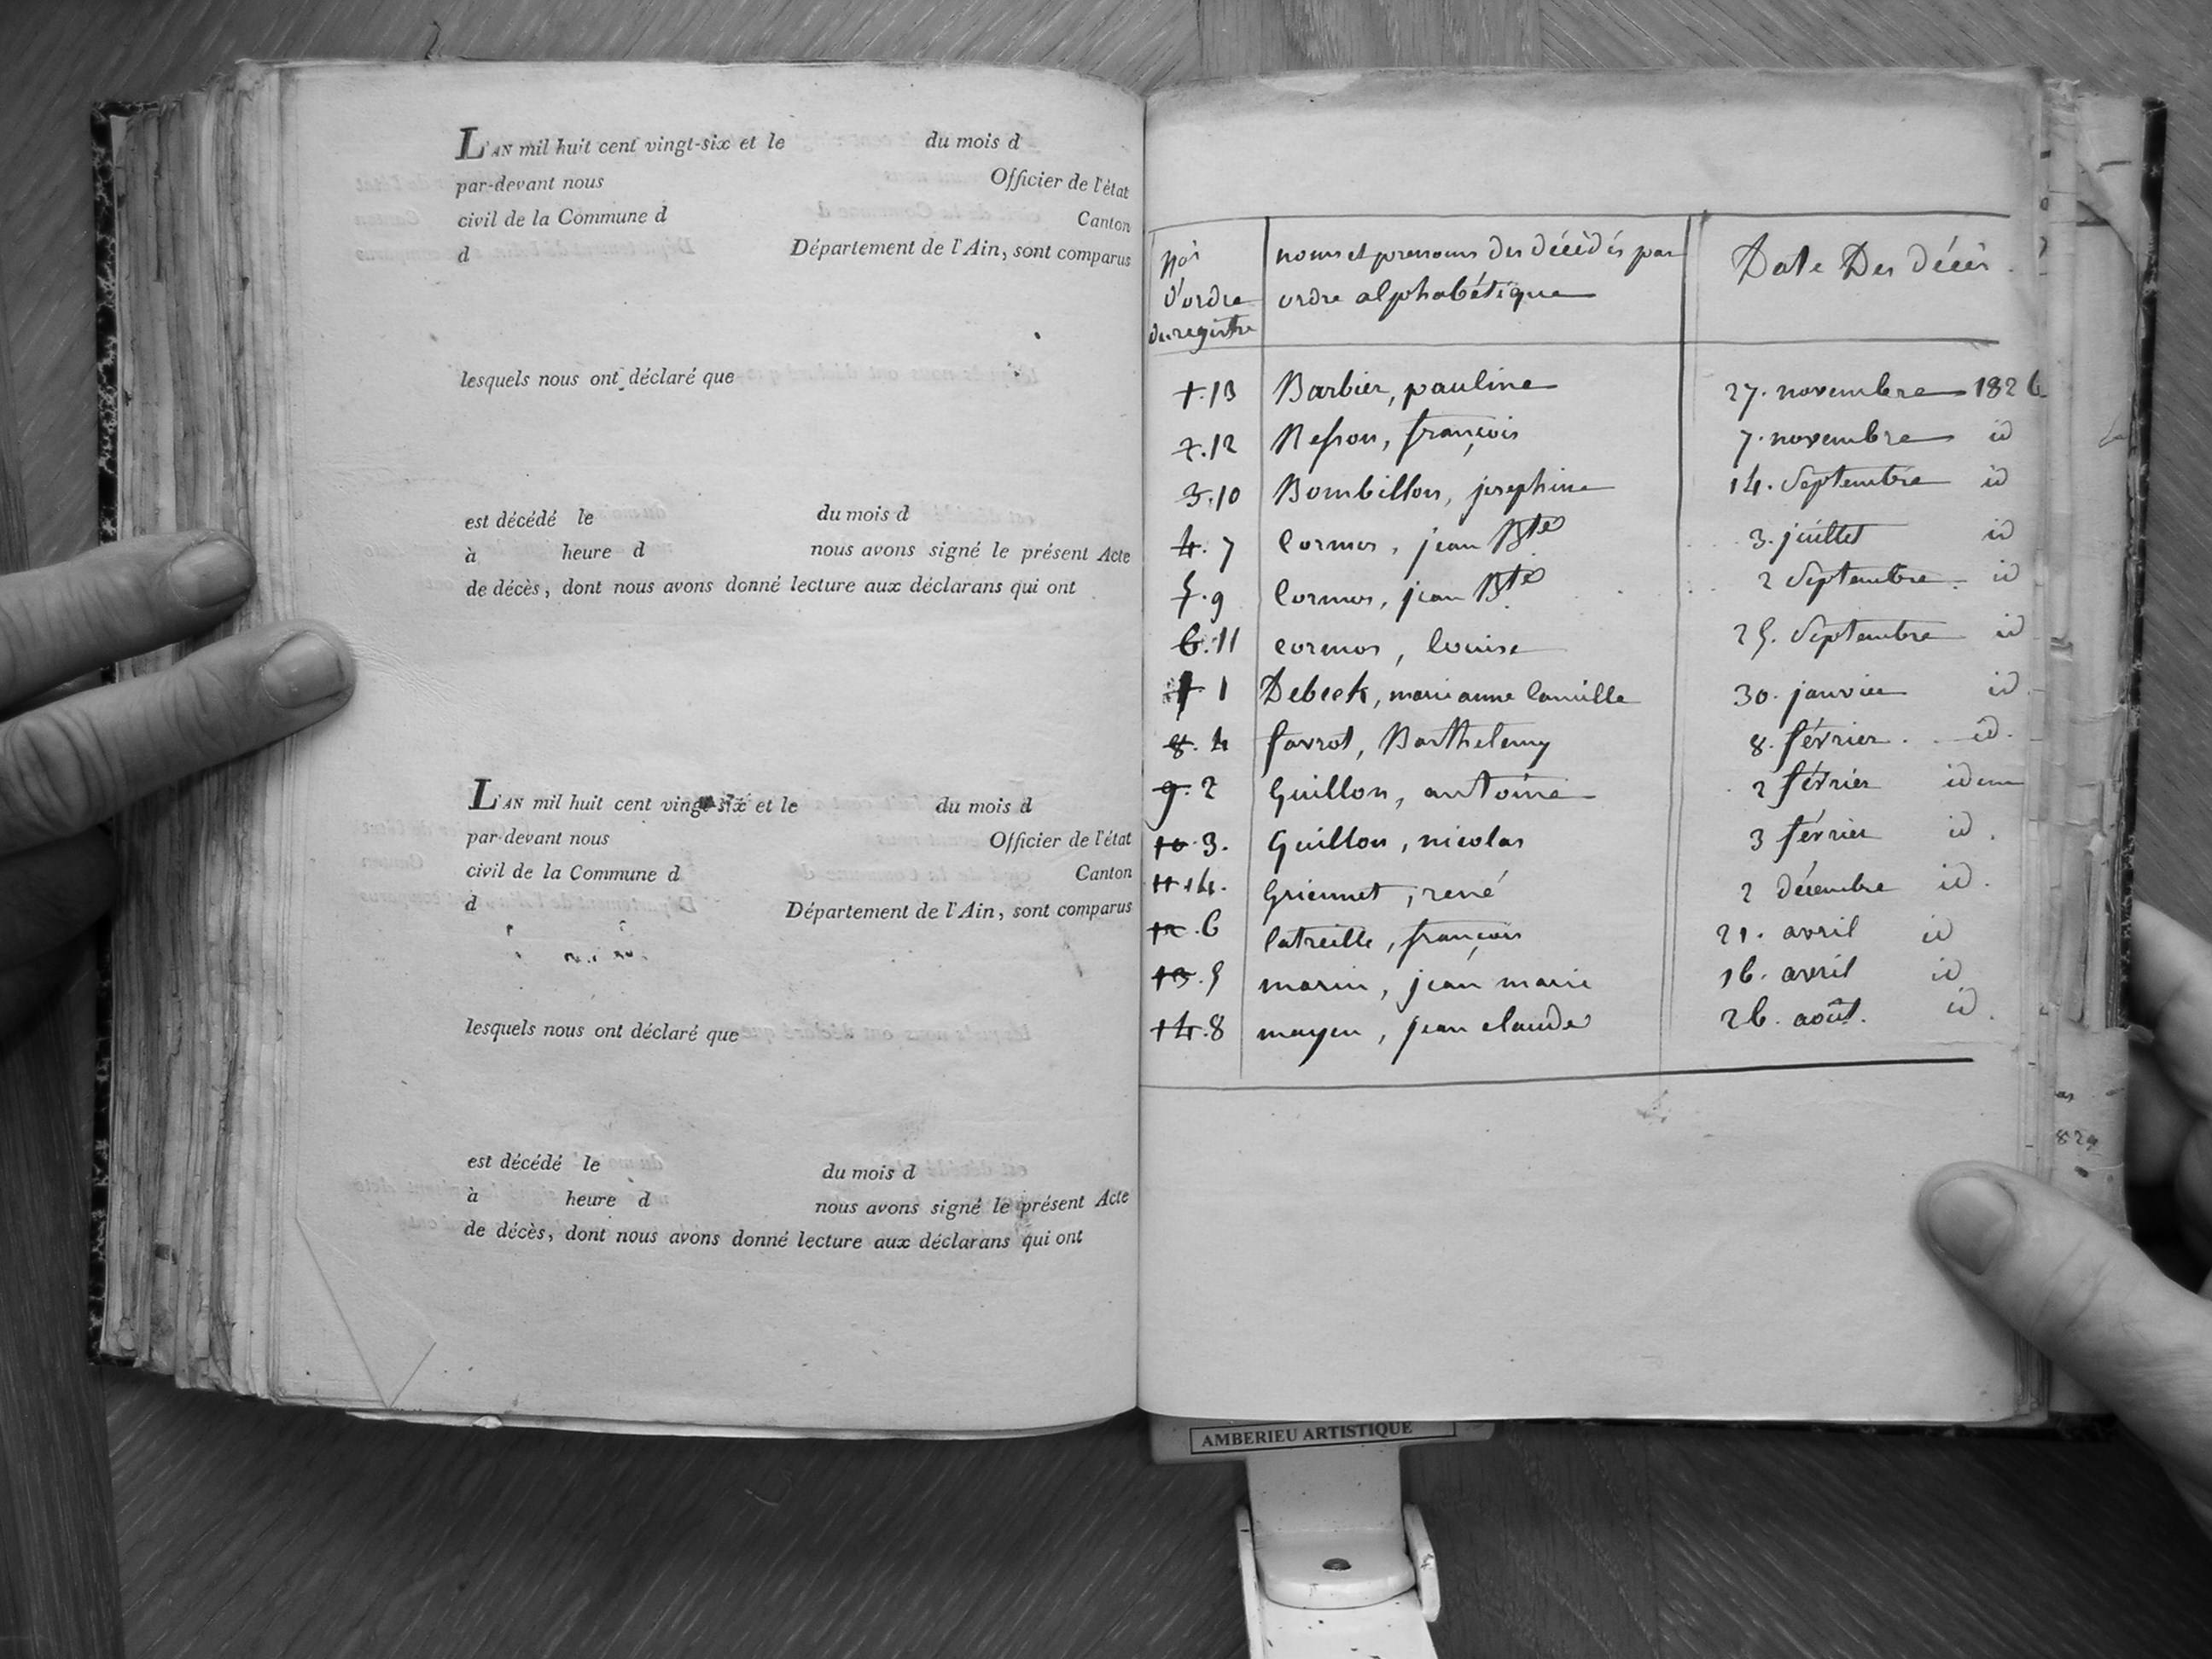 L'AN mil huit cent vingt-six et le du mois d
par-devant nous Officier de l'état
civil de la Commune d Canton
d Département de l'Ain, sont comparus
lesquels nous ont déclaré que
est décédé le du mois d
à heure d nous avons signé le présent Acte
de décès, dont nous avons donné lecture aux déclarans qui ont
L'AN mil huit cent vingt-six et le du mois d
par-devant nous Officier de l'état
civil de la Commune d Canton
d Département de l'Ain, sont comparus
lesquels nous ont déclaré que
est décédé le du mois d
à heure d nous avons signé le présent Acte
de décès, dont nous avons donné lecture aux déclarans qui ont
nos d'ordre du registre
noms et prenoms des décédés par
ordre alphabétique
Date Des décès.
1.13 Barbier, pauline 27. novembre 1826
2.12 françois 7. novembre id
3.10 Bombillon, josephine 14. Septembre id
4.7 Cormos, jean Bte 3. juillet id
5.9 Cormos, jean Bte 2 Septembre id
6.11 cormos, louise 25. Septembre id
7 1 Debeek, marie anne Camille 30. janvier id
8.4 favrot, Barthelemy 8. février. id.
9.2 Guillon, antoine 2 février idem
10 3. Guillon, nicolas 3 février id.
11 14. Griennet, rené 2 décembre id.
12.6 latreille, françois 21. avril id
13.5 marin, jean marie 16. avril id
14.8 mayen, jean claude 26. août. id.
829
AMBERIEU ARTISTIQUE